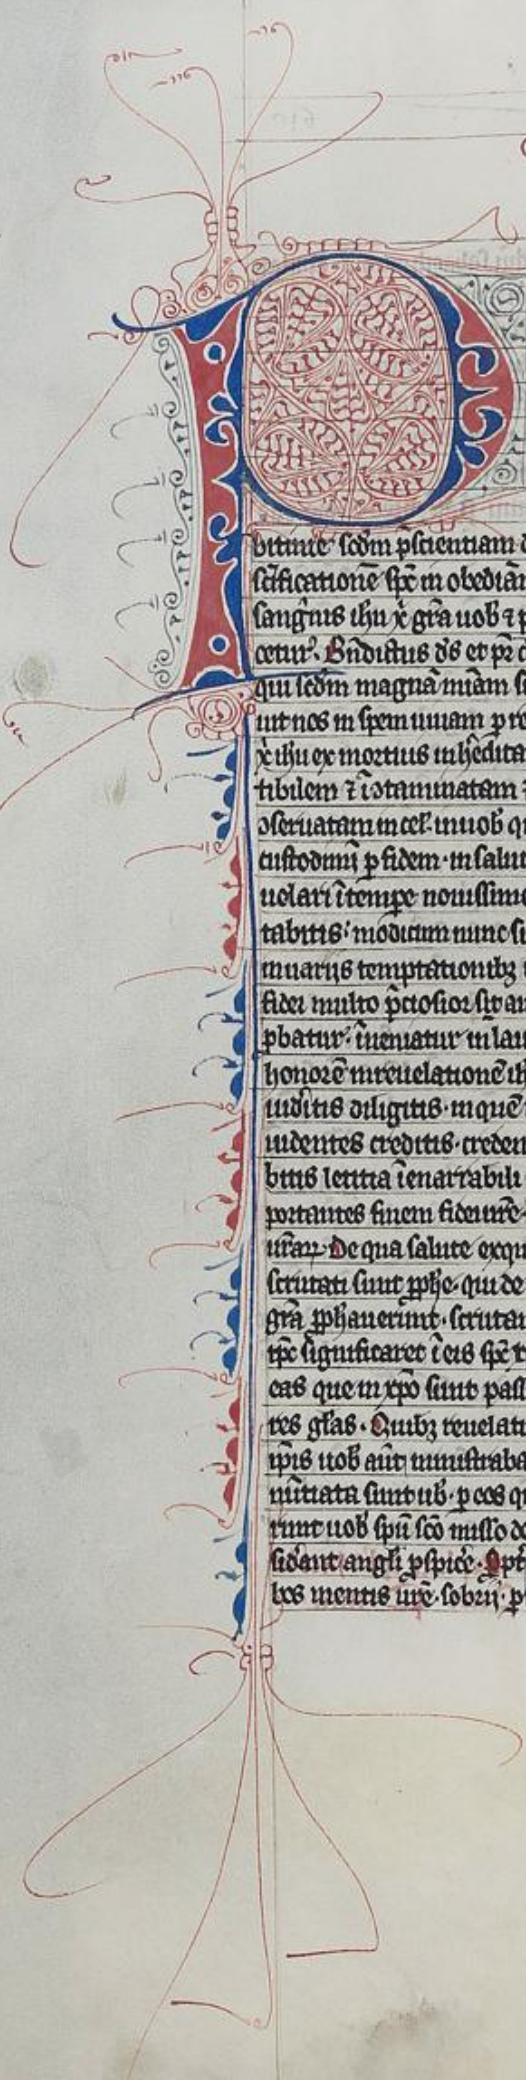 P
bitinie scd̄m p̄scientiam d
sc̄ificationē sp̄c in obediā
sanḡnis ih̄u x̄ gr̄a uob̄ ⁊ p
cetur. Bn̄dictus d̄s et pr̄
qui scd̄m magnā mīam s
uit nos in spem uiuam p re
x̄ ih̄u ex mortuis in hēdita
tibilem ⁊ īɔtaminatam ⁊
ɔseruatam in cel. in uob̄ q
custodimī p fidem. in salut
uelari ī tempe nouissimo
tabitis. modicum nunc si
in uarijs temptationibꝫ
fidei multo p̄ciosior sit au
pbatur. īueniatur in lau
honorē in reuelationē ih
uiditis diligitis. in quē
uidentes creditis. creden
bitis letitia īenarrabili
portantes finem fidei ur̄e.
ur̄aꝝ. De qua salute exqu
scrutati sunt ꝓphe. qui de
gr̄a ꝓphauerunt. scruta
tp̄c significaret ī eis sp̄c
eas que in xp̄o sunt pass
res gl̄as. Quibꝫ reuelat
ip̄is uob̄ aūt ministraba
nūtiata sunt ub̄. p eos q
runt uob̄ sp̄u sc̄o misso de
sid̄ant angl̄i ꝓspic̄e. Ꝓpt
bos mentis ur̄e. sobrij. p